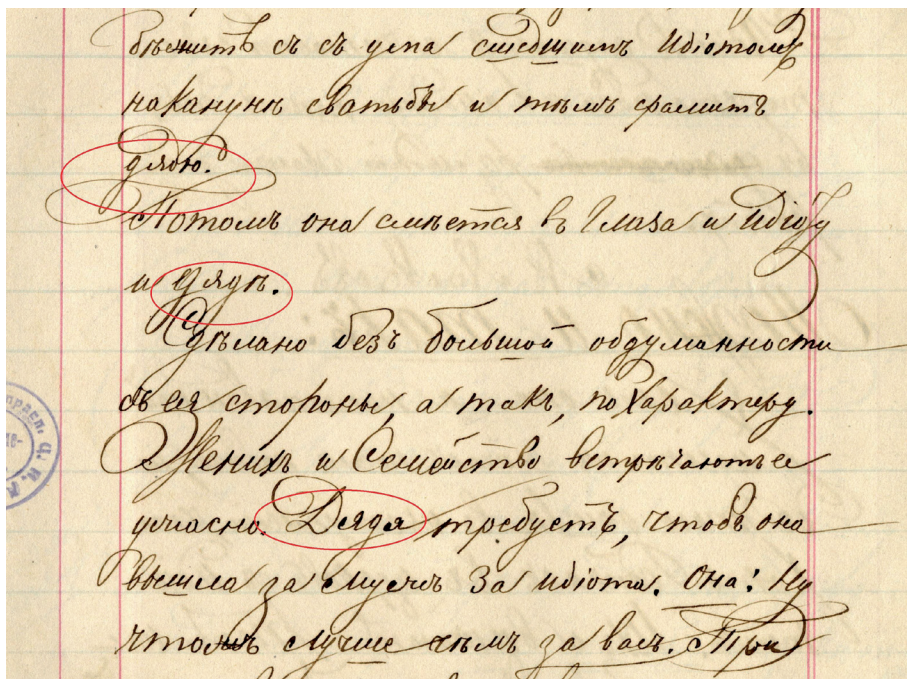 бѣжитъ съ съ ума сшедшимъ Идіотомъ
наканунѣ сватьбы и тѣмъ срамитъ
дядю.
Потомъ она смѣется въ глаза и Идіоту
и дядѣ.
Сдѣлано безъ большой обдуманности
съ ея стороны, а такъ, по характеру.
Женихъ и Семейство встрѣчаютъ ее
ужасно. Дядя требуетъ, чтобъ она
вышла за мужъ за идіота. Она: Ну
чтожъ лучше чѣмъ за васъ. При